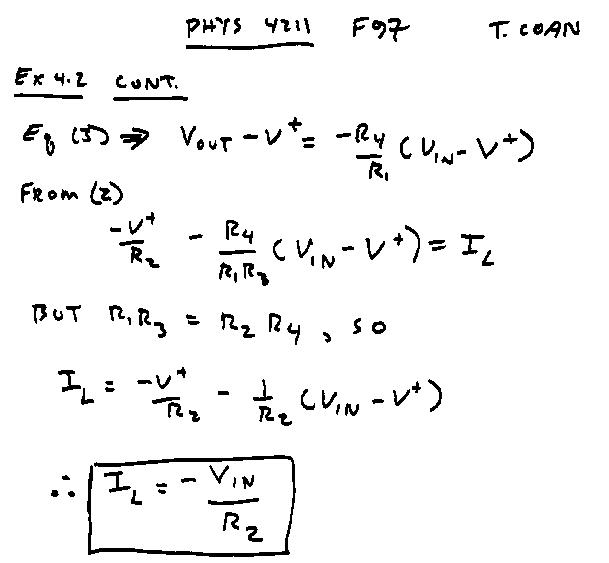 PHYS 4211 F97 T. COAN
Ex 4.2 CONT.
Eq (3) ⇒ V_OUT - V^+ = -R_4/R_1 (V_IN - V^+)
From (2)
-V^+/R_2 - R_4/(R_1 R_3) (V_IN - V^+) = I_L
BUT R_1 R_3 = R_2 R_4, so
I_L = -V^+/R_2 - 1/R_2 (V_IN - V^+)
∴ I_L = - V_IN/R_2